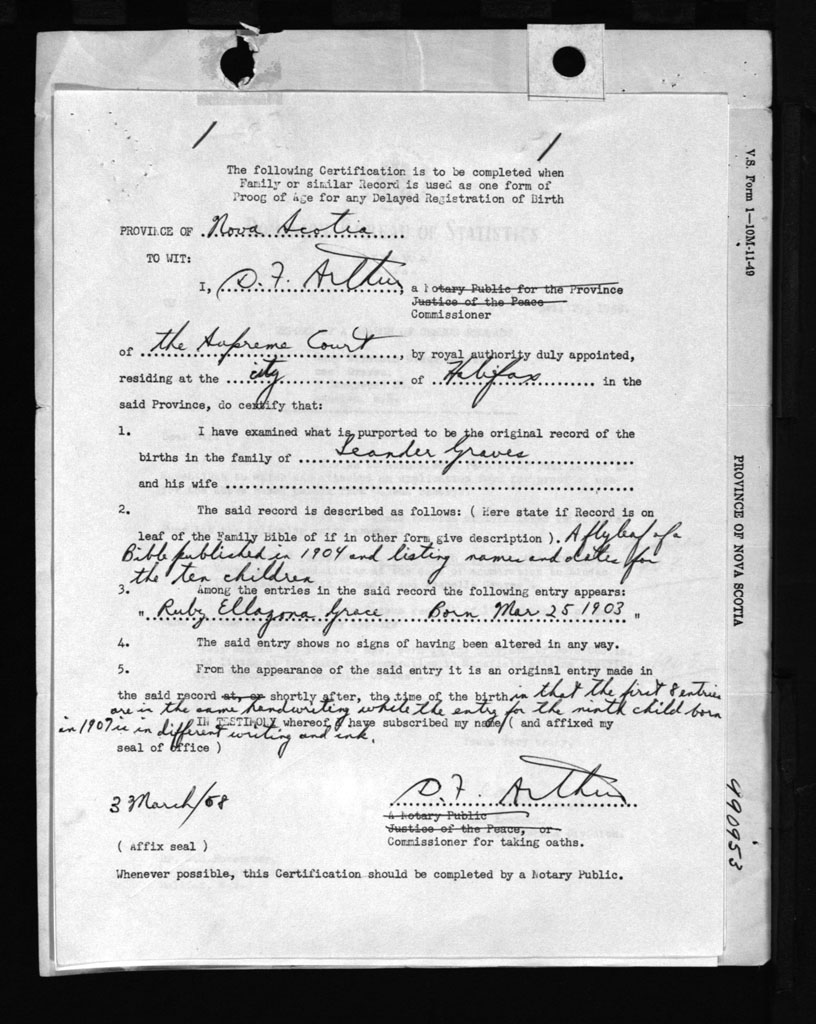 1 1
The following Certification is to be completed when
Family or similar Record is used as one form of
Proog of Age for any Delayed Registration of Birth
PROVINCE OF Nova Scotia
TO WIT:
I, D. F. Arthur, a Notary Public for the Province
Justice of the Peace
Commissioner
of the Supreme Court, by royal authority duly appointed,
residing at the city of Halifax in the
said Province, do certify that:
1. I have examined what is purported to be the original record of the
births in the family of Leander Graves
and his wife
2. The said record is described as follows: ( Here state if Record is on
leaf of the Family Bible of if in other form give description ). A flyleaf of a
Bible published in 1904 and listing names and dates for
the ten children
3. Among the entries in the said record the following entry appears:
" Ruby Ellazona Grace Born Mar 25 1903 "
4. The said entry shows no signs of having been altered in any way.
5. From the appearance of the said entry it is an original entry made in
the said record at, or shortly after, the time of the birth in that the first 8 entries
are in the same handwriting while the entry for the ninth child born
in 1907 is in different writing and ink.
IN TESTIMONY whereof I have subscribed my name ( and affixed my
seal of office )
3 March/58
D. F. Arthur
A Notary Public
Justice of the Peace, or
Commissioner for taking oaths.
( Affix seal )
Whenever possible, this Certification should be completed by a Notary Public.
V.S. Form 1—10M-11-49
PROVINCE OF NOVA SCOTIA
490953